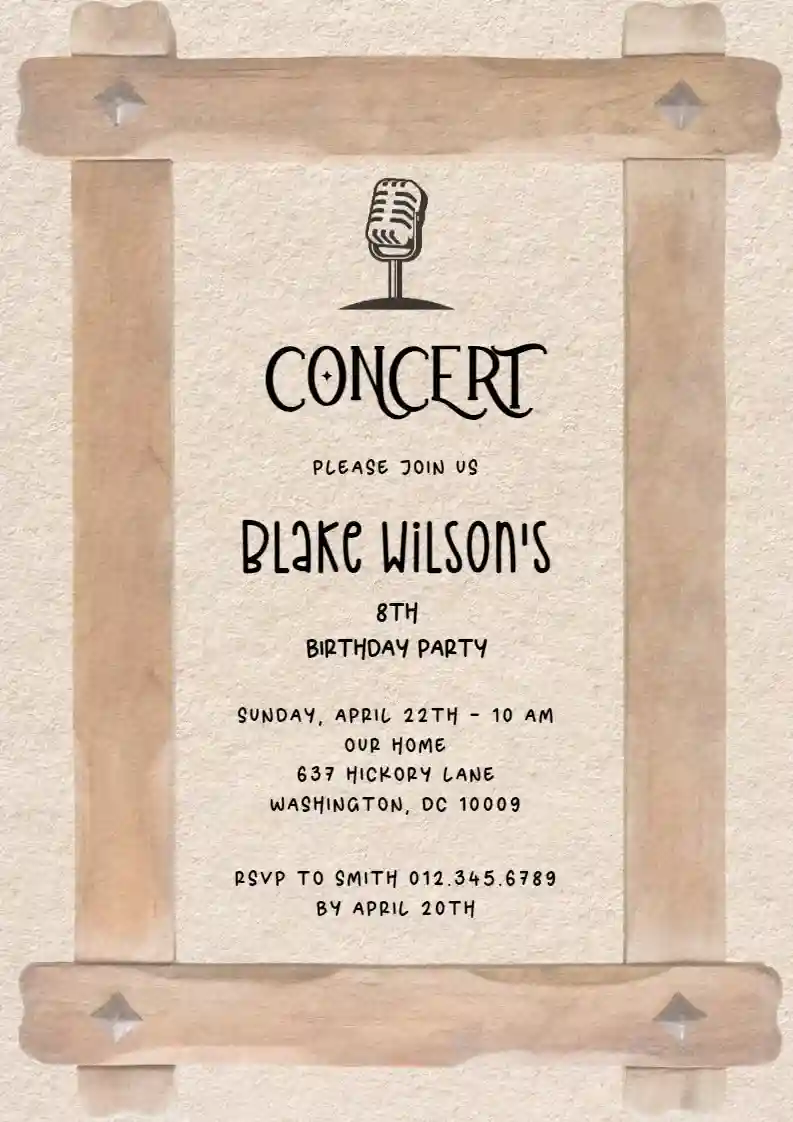 CONCERT
PLEASE JOIN US
Blake Wilson's
8TH
BIRTHDAY PARTY
SUNDAY, APRIL 22TH - 10 AM
OUR HOME
637 HICKORY LANE
WASHINGTON, DC 10009
RSVP TO SMITH 012.345.6789
BY APRIL 20TH